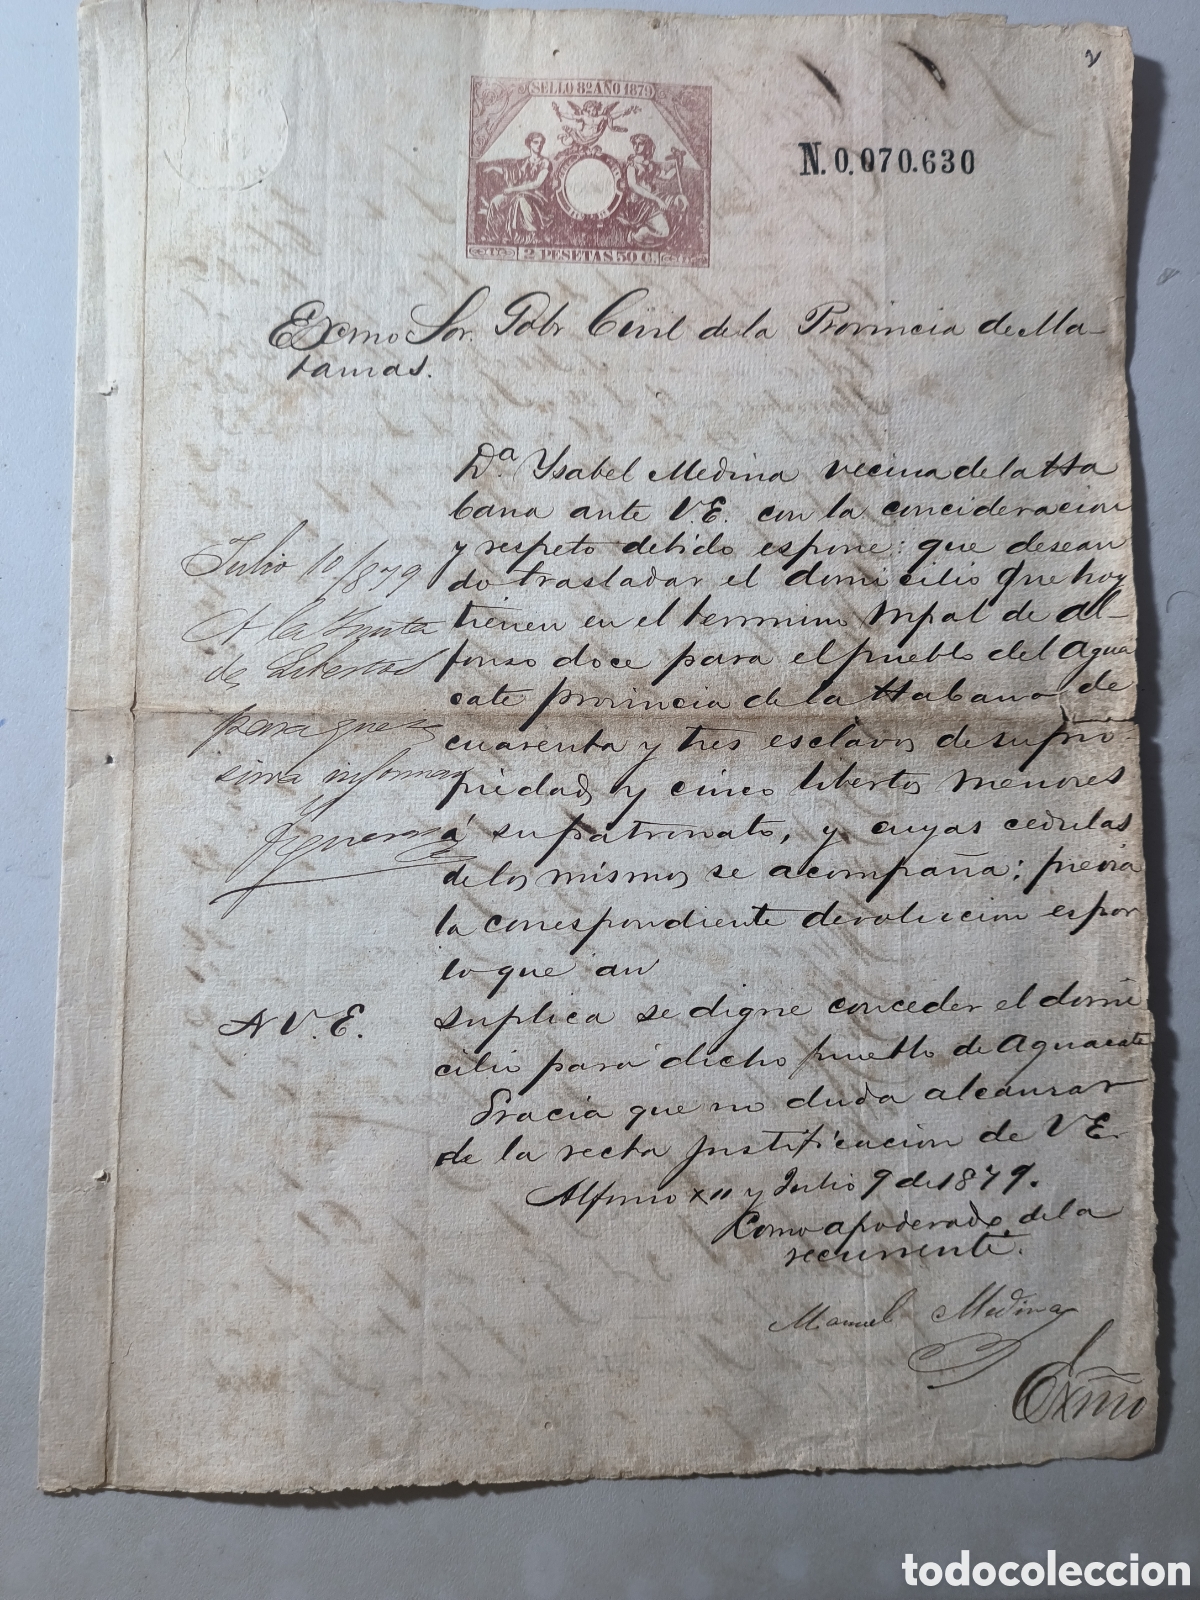 2
SELLO 8º AÑO 1879
2 PESETAS 50 C.
N. 0.070.630
Excmo Sor. Gobr Civil de la Provincia de Ma-
tanzas.
Dª Ysabel Medina vecina de la Ha
bana ante V.E. con la concideracion
y respeto debido espone: que desean
do trasladar el domicilio que hoy
tienen en el termino Mpal de Al-
fonso doce para el pueblo del Agua
cate provincia de la Habana de
cuarenta y tres esclavos de su pro-
piedad, y cinco libertos menores
á su patronato, y cuyas cedulas
de los mismos se acompaña; previa
la correspondiente devolucion es por
lo que a
A V.E.
suplica se digne conceder el domi
cilio para dicho pueblo de Aguacate
Gracia que no duda alcanzar
de la recta justificacion de VE.
Alfonso XII y Julio 9 de 1879.
Como apoderado de la
recurrente.
Manuel Medina
Exmo
Julio 10/879
A la Junta
de Libertos
para que se
sirva informar
todocoleccion